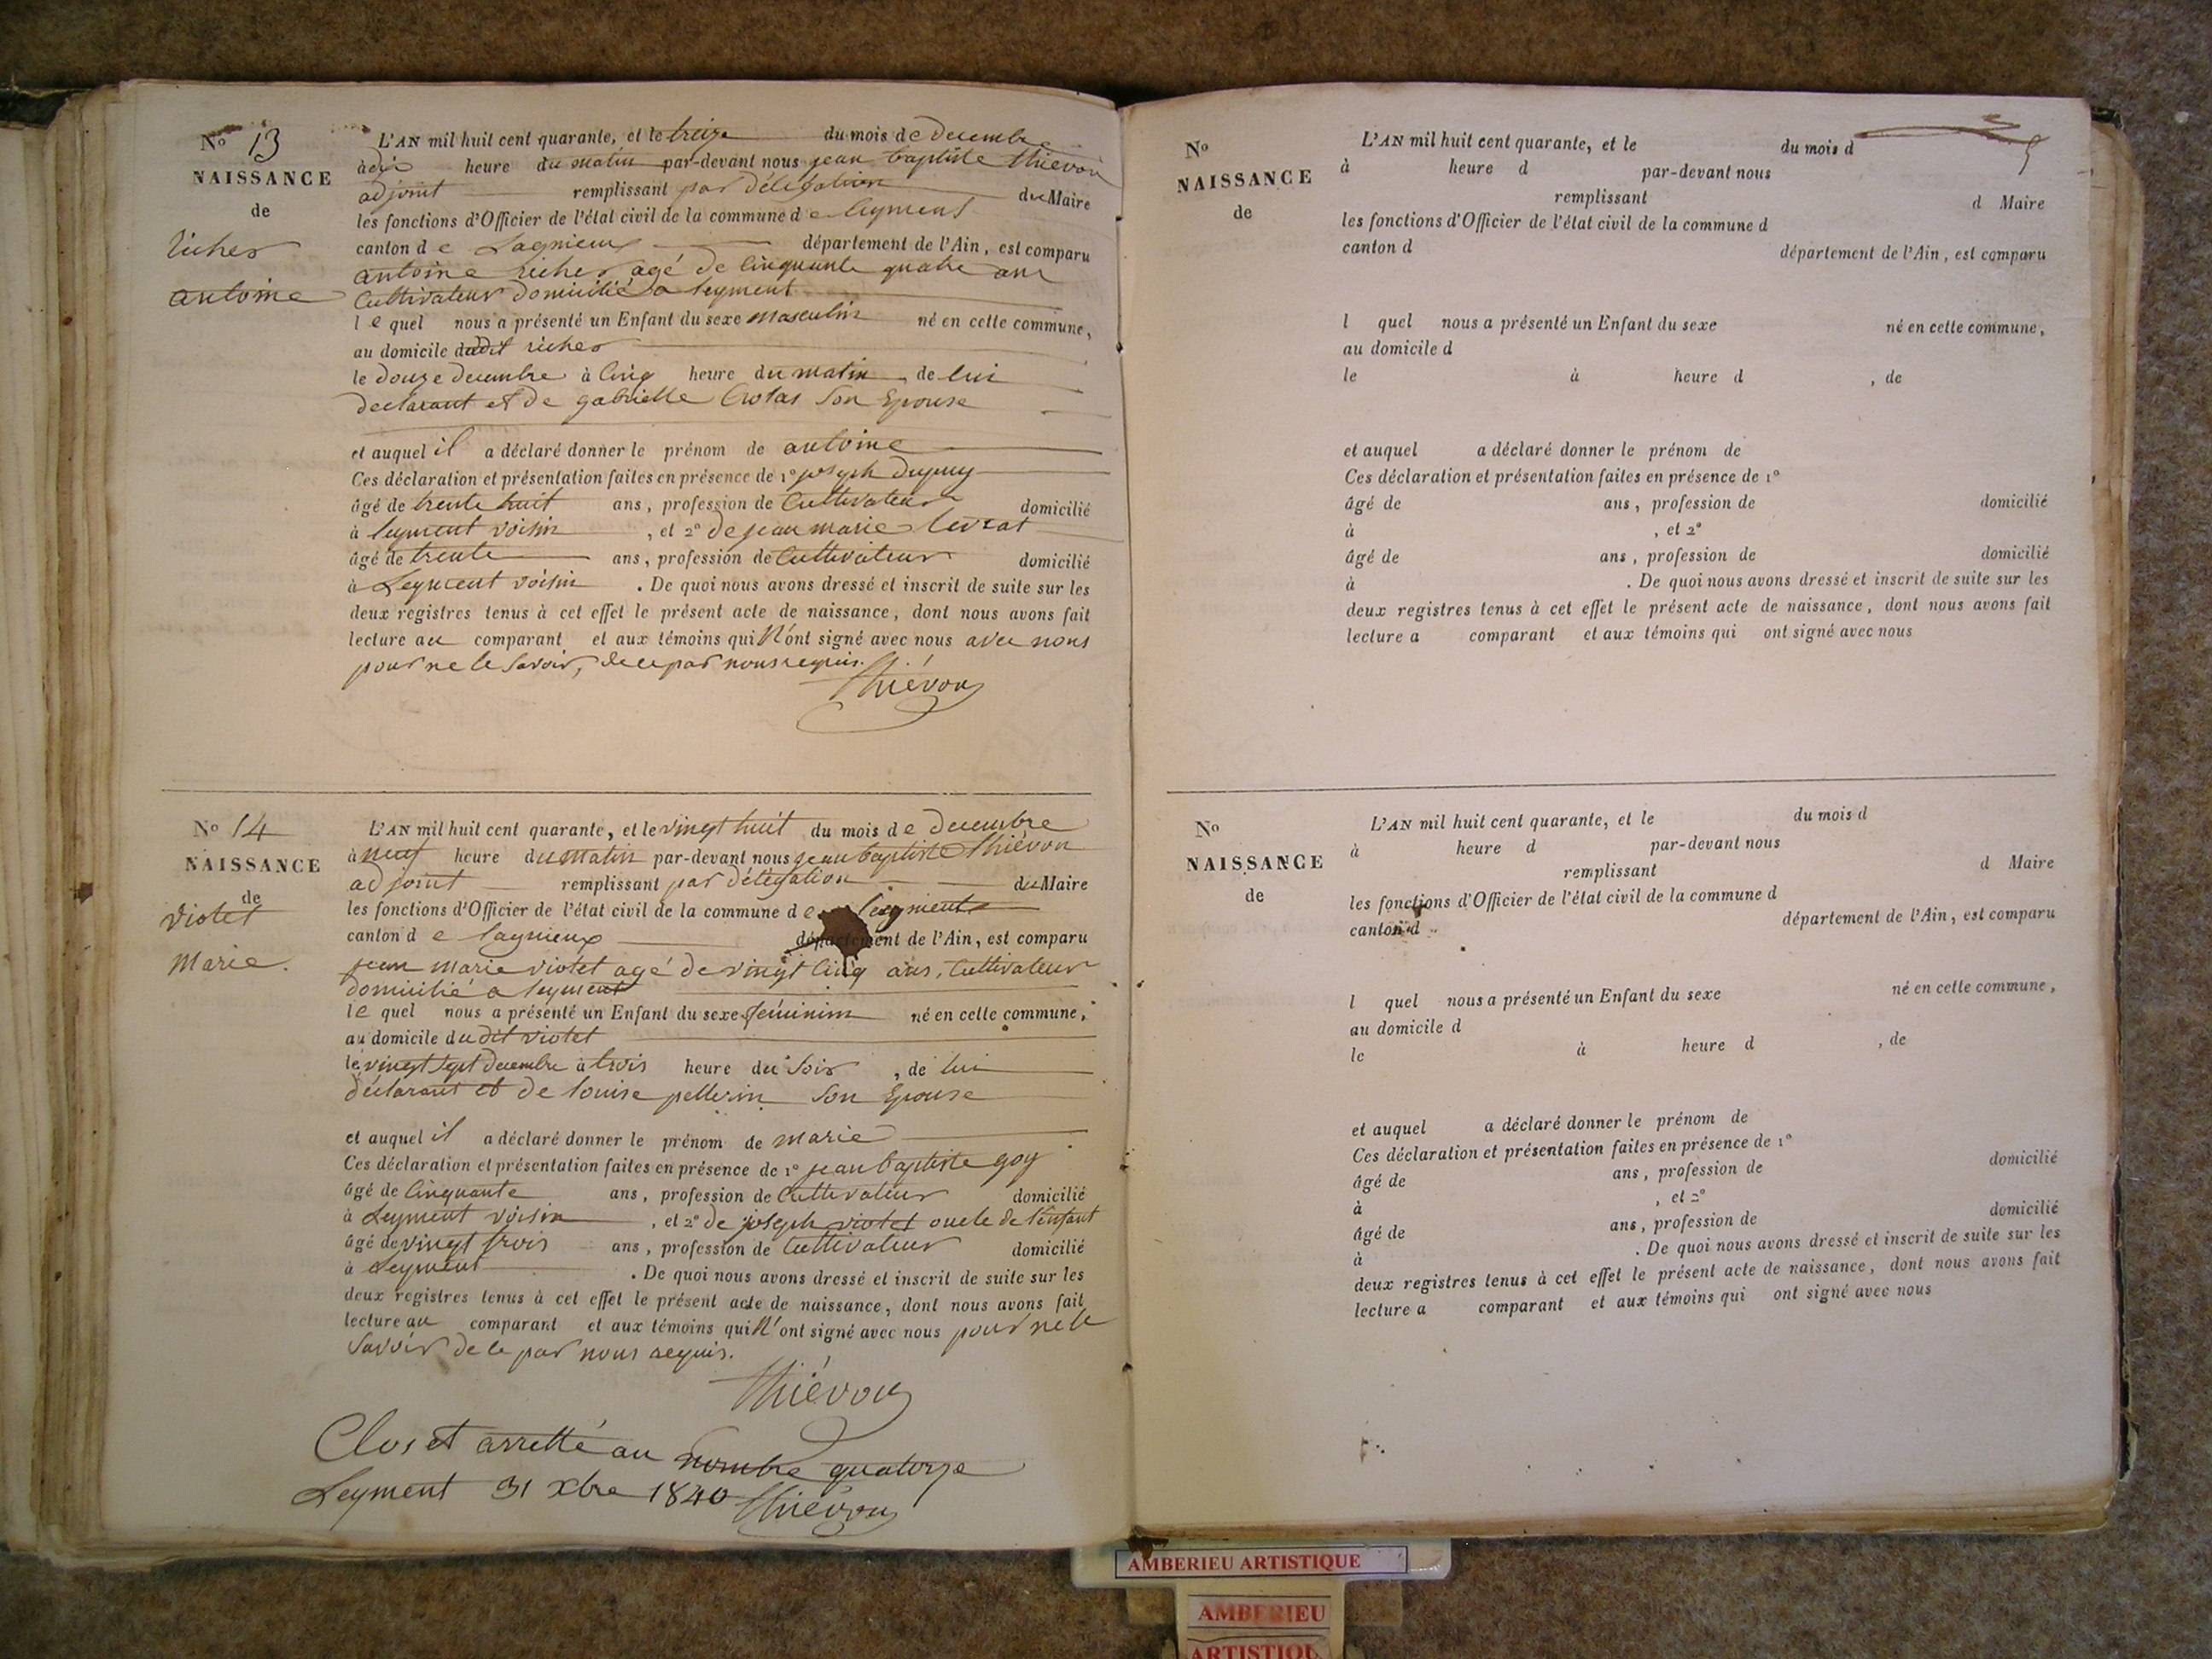 N° 13
NAISSANCE
de
riches
antoine
L'AN mil huit cent quarante, et le treize du mois de decembre
à dix heure du matin par-devant nous jean baptiste thiévon
adjoint remplissant par délégation du Maire
les fonctions d'Officier de l'état civil de la commune de leyment
canton de Lagnieux département de l'Ain, est comparu
antoine riches agé de cinquante quatre ans
cultivateur domicilié a leyment
lequel nous a présenté un Enfant du sexe masculin né en cette commune,
au domicile dudit riches
le douze decembre à cinq heure du matin, de lui
declarant et de gabrielle Crotas son Epouse
et auquel il a déclaré donner le prénom de antoine
Ces déclaration et présentation faites en présence de 1° joseph Dupuy
âgé de trente huit ans, profession de Cultivateur domicilié
à leyment voisin, et 2° de jean marie levrat
âgé de trente ans, profession de Cultivateur domicilié
à Leyment voisin. De quoi nous avons dressé et inscrit de suite sur les
deux registres tenus à cet effet le présent acte de naissance, dont nous avons fait
lecture au comparant et aux témoins qui N'ont signé avec nous avec nous
pour ne le savoir, de ce par nous requis.
Thiévon
N° 14
NAISSANCE
de
violet
marie.
L'AN mil huit cent quarante, et le vingt huit du mois de decembre
à neuf heure du matin par-devant nous jean baptiste thiévon
adjoint remplissant par délégation du Maire
les fonctions d'Officier de l'état civil de la commune de leyment
canton de lagnieux département de l'Ain, est comparu
jean marie violet agé de vingt cinq ans, cultivateur
domicilié a leyment
lequel nous a présenté un Enfant du sexe féminin né en cette commune,
au domicile dudit violet
le vingt sept decembre à trois heure du soir, de lui
déclarant et de louise pellerin son Epouse
et auquel il a déclaré donner le prénom de marie
Ces déclaration et présentation faites en présence de 1° jean baptiste goy
âgé de cinquante ans, profession de cultivateur domicilié
à Leyment voisin, et 2° de joseph violet oncle de l'enfant
âgé de vingt trois ans, profession de Cultivateur domicilié
à Leyment. De quoi nous avons dressé et inscrit de suite sur les
deux registres tenus à cet effet le présent acte de naissance, dont nous avons fait
lecture au comparant et aux témoins qui N'ont signé avec nous pour ne le
savoir de ce par nous requis.
Thiévon
Clos et arretté au nombre quatorze
Leyment 31 xbre 1840 Thiévon
N°
NAISSANCE
de
L'AN mil huit cent quarante, et le du mois d
à heure d par-devant nous
remplissant d Maire
les fonctions d'Officier de l'état civil de la commune d
canton d département de l'Ain, est comparu
l quel nous a présenté un Enfant du sexe né en cette commune,
au domicile d
le à heure d , de
et auquel a déclaré donner le prénom de
Ces déclaration et présentation faites en présence de 1°
âgé de ans, profession de domicilié
à , et 2°
âgé de ans, profession de domicilié
à . De quoi nous avons dressé et inscrit de suite sur les
deux registres tenus à cet effet le présent acte de naissance, dont nous avons fait
lecture a comparant et aux témoins qui ont signé avec nous
N°
NAISSANCE
de
L'AN mil huit cent quarante, et le du mois d
à heure d par-devant nous
remplissant d Maire
les fonctions d'Officier de l'état civil de la commune d
canton d département de l'Ain, est comparu
l quel nous a présenté un Enfant du sexe né en cette commune,
au domicile d
le à heure d , de
et auquel a déclaré donner le prénom de
Ces déclaration et présentation faites en présence de 1°
âgé de ans, profession de domicilié
à , et 2°
âgé de ans, profession de domicilié
à . De quoi nous avons dressé et inscrit de suite sur les
deux registres tenus à cet effet le présent acte de naissance, dont nous avons fait
lecture a comparant et aux témoins qui ont signé avec nous
AMBERIEU ARTISTIQUE
AMBERIEU
ARTISTIQU